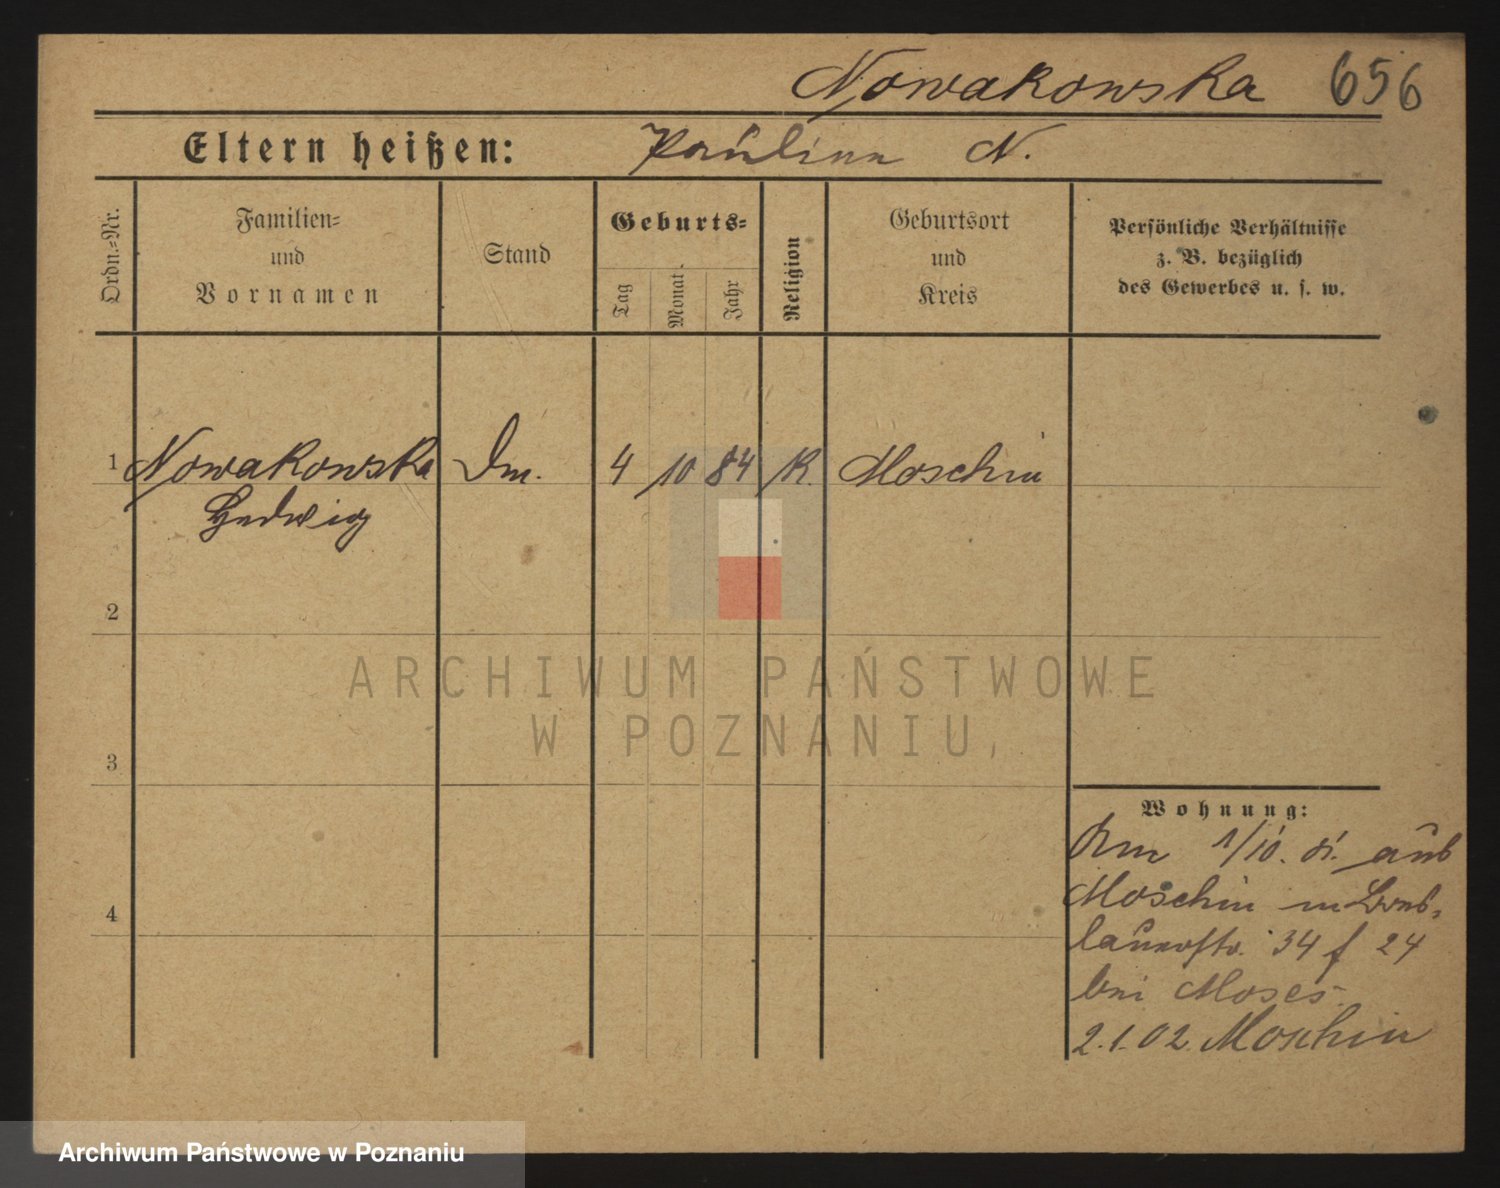 Nowakowska 656
Eltern heißen: Paulina N.
Ordn.=Nr.
Familien=
und
Vornamen
Stand
Geburts=
Tag
Monat
Jahr
Religion
Geburtsort
und
Kreis
Persönliche Verhältnisse
z. B. bezüglich
des Gewerbes u. s. w.
1 Nowakowska Dm. 4 10 84 K. Moschin
Hedwig
2
ARCHIWUM PAŃSTWOWE
W POZNANIU,
3
Wohnung:
1/10. 01. aus
Moschin n Bres-
lauerstr. 34 f 24
bei Moses.
4
2.1.02. Moschin
Archiwum Państwowe w Poznaniu